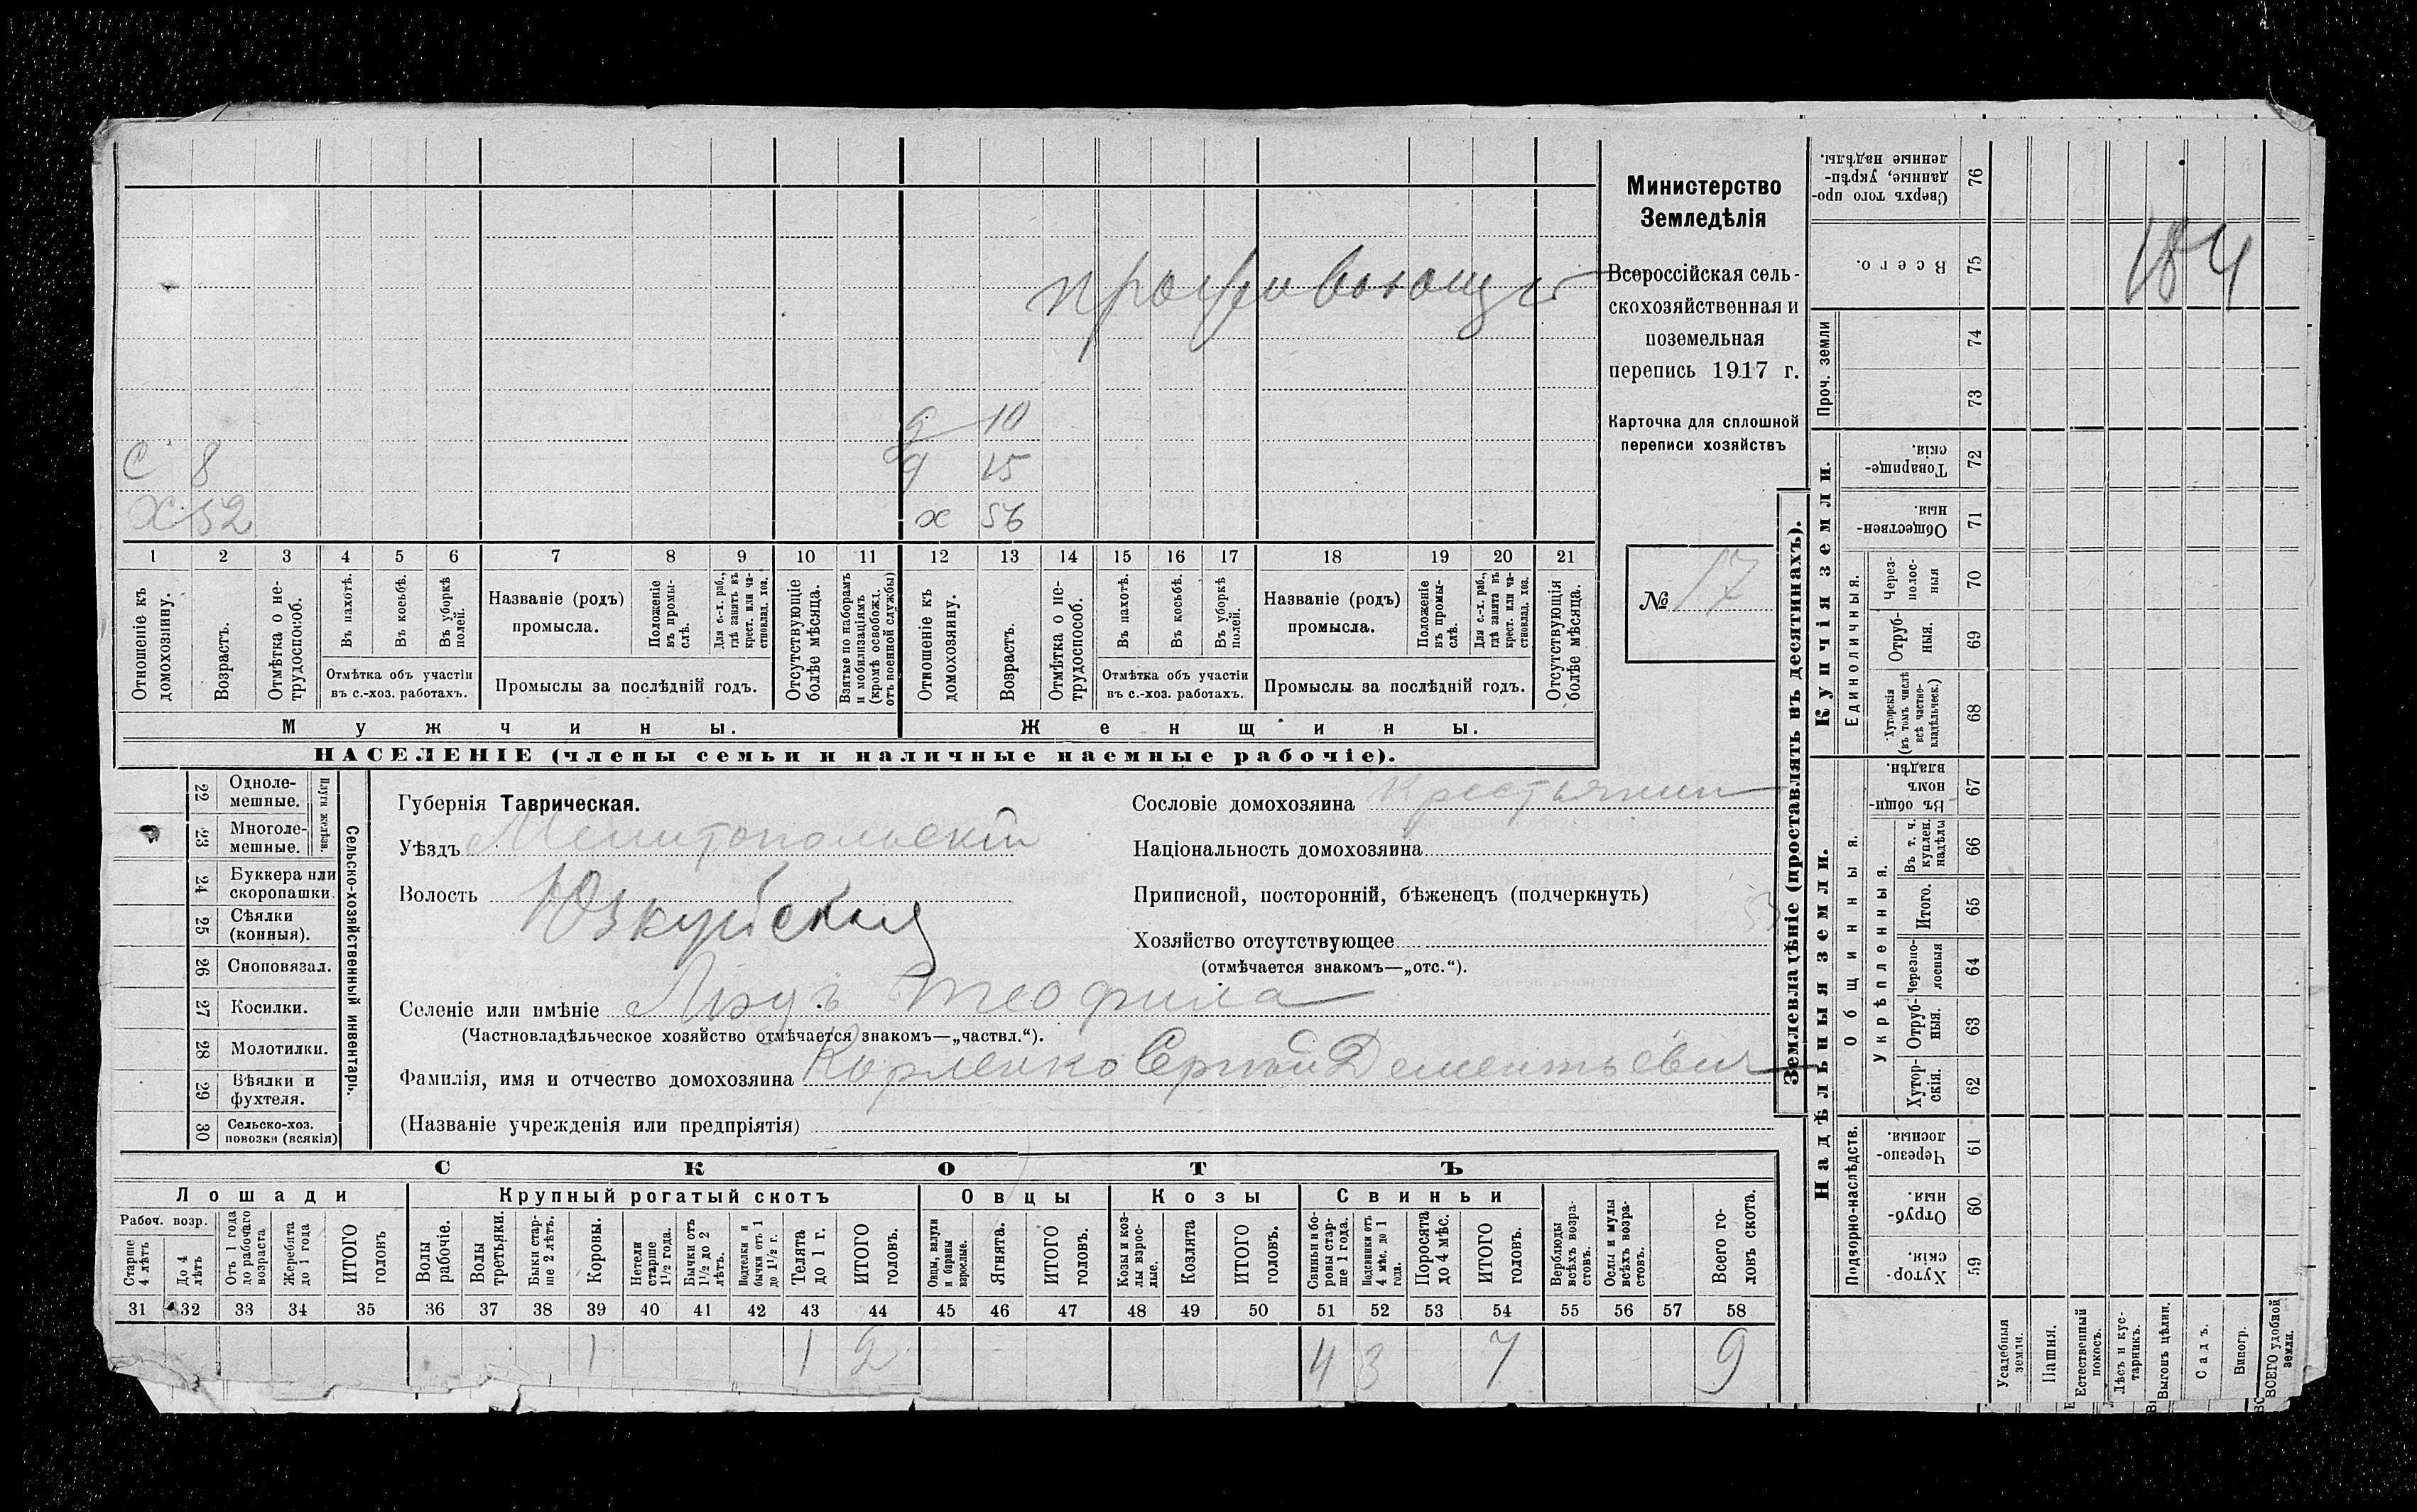 проживающ
С 8
д 10
д 15
Х 52
х 56
1 2 3 4 5 6 7 8 9 10 11 12 13 14 15 16 17 18 19 20 21
Отношеніе къ домохозяину.
Возрастъ.
Отмѣтка о не-трудоспособ.
Въ пахотѣ.
Въ косьбѣ.
Въ уборкѣ полей.
Отмѣтка объ участіи
въ с.-хоз. работахъ.
Названіе (родъ)
промысла.
Положеніе въ промы-слѣ.
Для с.-х. раб., гдѣ занятъ въ крест. или ча-стновлад. хоз.
Промыслы за послѣдній годъ.
Отсутствующіе болѣе мѣсяца.
Взятые по наборамъ и мобилизаціямъ (кромѣ освобожд. отъ военной службы)
Отношеніе къ домохозяину.
Возрастъ.
Отмѣтка о не-трудоспособ.
Въ пахотѣ.
Въ косьбѣ.
Въ уборкѣ полей.
Отмѣтка объ участіи
въ с.-хоз. работахъ.
Названіе (родъ)
промысла.
Положеніе въ промы-слѣ.
Для с.-х. раб., гдѣ занята въ крест. или ча-стновлад. хоз.
Промыслы за послѣдній годъ.
Отсутствующія болѣе мѣсяца.
Мужчины. Женщины.
НАСЕЛЕНІЕ (члены семьи и наличные наемные рабочіе).
Министерство
Земледѣлія
Всероссійская сель-
скохозяйственная и
поземельная
перепись 1917 г.
Карточка для сплошной
переписи хозяйствъ
№ 17
22 Одноле-мешные.
23 Многоле-мешные.
Плуги желѣзн.
24 Буккера или скоропашки.
25 Сѣялки (конныя).
26 Сноповязал.
27 Косилки.
28 Молотилки.
29 Вѣялки и фухтеля.
30 Сельско-хоз. повозки (всякія)
Сельско-хозяйственный инвентарь.
Губернія Таврическая.
Уѣздъ Мелитопольскій
Волость Юзкуйская
Селеніе или имѣніе Теофила
(Частновладѣльческое хозяйство отмѣчается знакомъ—„частвл.“).
Фамилія, имя и отчество домохозяина Корленко Сергей Дементьевич
(Названіе учрежденія или предпріятія)
Сословіе домохозяина Крестьянин
Національность домохозяина
Приписной, посторонній, бѣженецъ (подчеркнуть)
Хозяйство отсутствующее
(отмѣчается знакомъ—„отс.“).
СКОТЪ
Лошади Крупный рогатый скотъ Овцы Козы Свиньи
Рабоч. возр.
Старше 4 лѣтъ
До 4 лѣтъ
Отъ 1 года до рабочаго возраста
Жеребята до 1 года
ИТОГО головъ
Волы рабочіе.
Волы третьяки.
Быки стар-ше 2 лѣтъ.
Коровы.
Нетели старше 1½ года.
Бычки отъ 1½ до 2 лѣтъ.
Подтелки и бычки отъ 1 до 1½ г.
Телята до 1 г.
ИТОГО головъ.
Овцы, валухи и бараны взрослые.
Ягнята.
ИТОГО головъ.
Козы и коз-лы взрос-лые.
Козлята
ИТОГО головъ.
Свиньи и бо-ровы стар-ше 1 года.
Подсвинки отъ 4 мѣс. до 1 года.
Поросята до 4 мѣс.
ИТОГО головъ.
Верблюды всѣхъ возра-стовъ.
Ослы и мулы всѣхъ возра-стовъ.
Всего го-ловъ скота.
31 32 33 34 35 36 37 38 39 40 41 42 43 44 45 46 47 48 49 50 51 52 53 54 55 56 57 58
1 1 2 4 3 7 9
Землевладѣніе (проставлять въ десятинахъ).
Надѣльныя земли. Купчія земли.
Проч. земли
Подворно-наслѣдств.
Общинныя.
Укрѣпленныя.
Единоличныя.
Сверхъ того про-данные, укрѣп-ленные надѣлы. 76
Всего. 75
74
73
Товарище-скія. 72
Обществен-ныя. 71
Через-полос-ныя 70
Отруб-ныя. 69
Хуторскія (въ томъ числѣ всѣ частно-владѣльческ.) 68
Въ общи-номъ владѣн. 67
Въ т. ч. куплен. надѣлы 66
Итого. 65
Черезпо-лосныя 64
Отруб-ныя. 63
Хутор-скія. 62
Черезпо-лосныя. 61
Отруб-ныя. 60
Хутор-скія. 59
184
Усадебныя земли.
Пашня.
Естественный покосъ.
Лѣсъ и кус-тарникъ.
Выгонъ цѣлин.
Садъ.
Виногр.
ВСЕГО удобной земли.